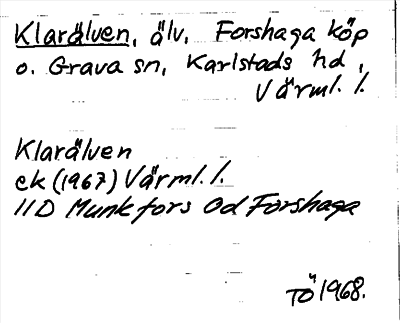 Klarälven, älv, Forshaga köp
o. Grava sn, Karlstads hd,
Värml. l.
Klarälven
ek (1967) Värml. l.
11D Munkfors Od Forshaga
TÖ 1968.